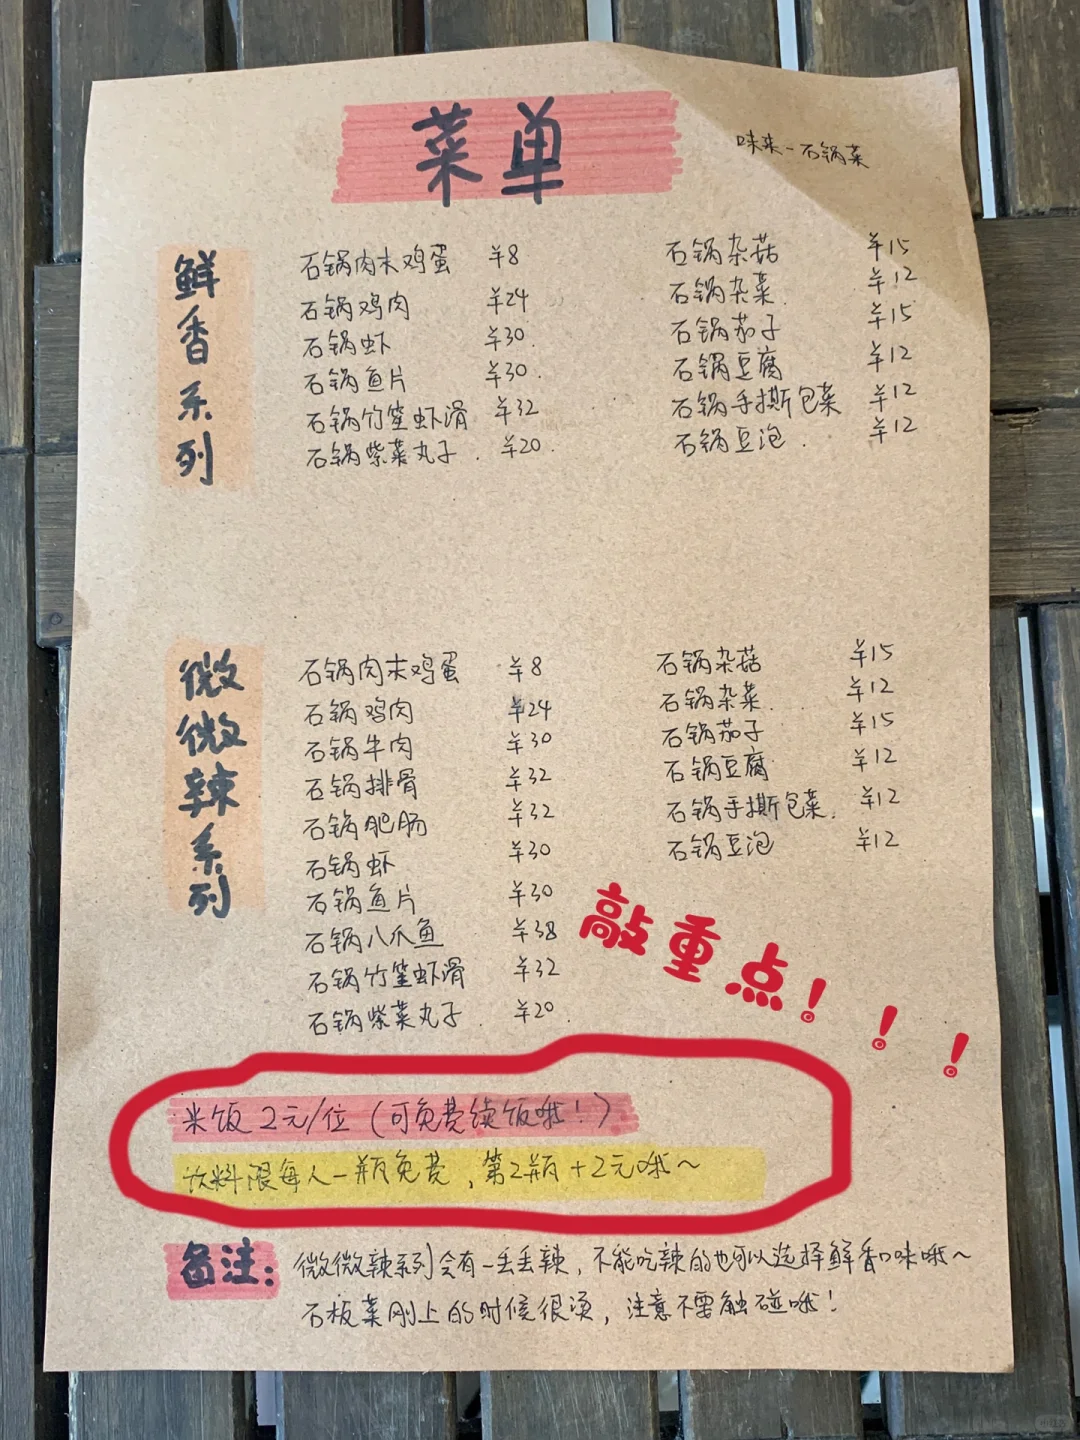 菜单
味来-石锅菜
鲜香系列
石锅肉末鸡蛋 ¥8
石锅鸡肉 ¥24
石锅虾 ¥30.
石锅鱼片 ¥30.
石锅竹笙虾滑 ¥32
石锅紫菜丸子. ¥20.
石锅杂菇 ¥15
石锅杂菜. ¥12
石锅茄子 ¥15
石锅豆腐 ¥12
石锅手撕包菜 ¥12
石锅豆泡. ¥12
微微辣系列
石锅肉末鸡蛋 ¥8
石锅鸡肉 ¥24
石锅牛肉 ¥30
石锅排骨 ¥32
石锅肥肠 ¥32
石锅虾 ¥30
石锅鱼片 ¥30
石锅八爪鱼 ¥38
石锅竹笙虾滑 ¥32
石锅紫菜丸子. ¥20.
石锅杂菇 ¥15
石锅杂菜. ¥12
石锅茄子 ¥15
石锅豆腐 ¥12
石锅手撕包菜. ¥12
石锅豆泡 ¥12
敲重点！！！
米饭 2元/位（可免费续饭哦！）
饮料限每人一瓶免费，第2瓶+2元哦～
备注：微微辣系列会有一丢丢辣，不能吃辣的也可以选择鲜香口味哦～
石板菜刚上的时候很烫，注意不要触碰哦！